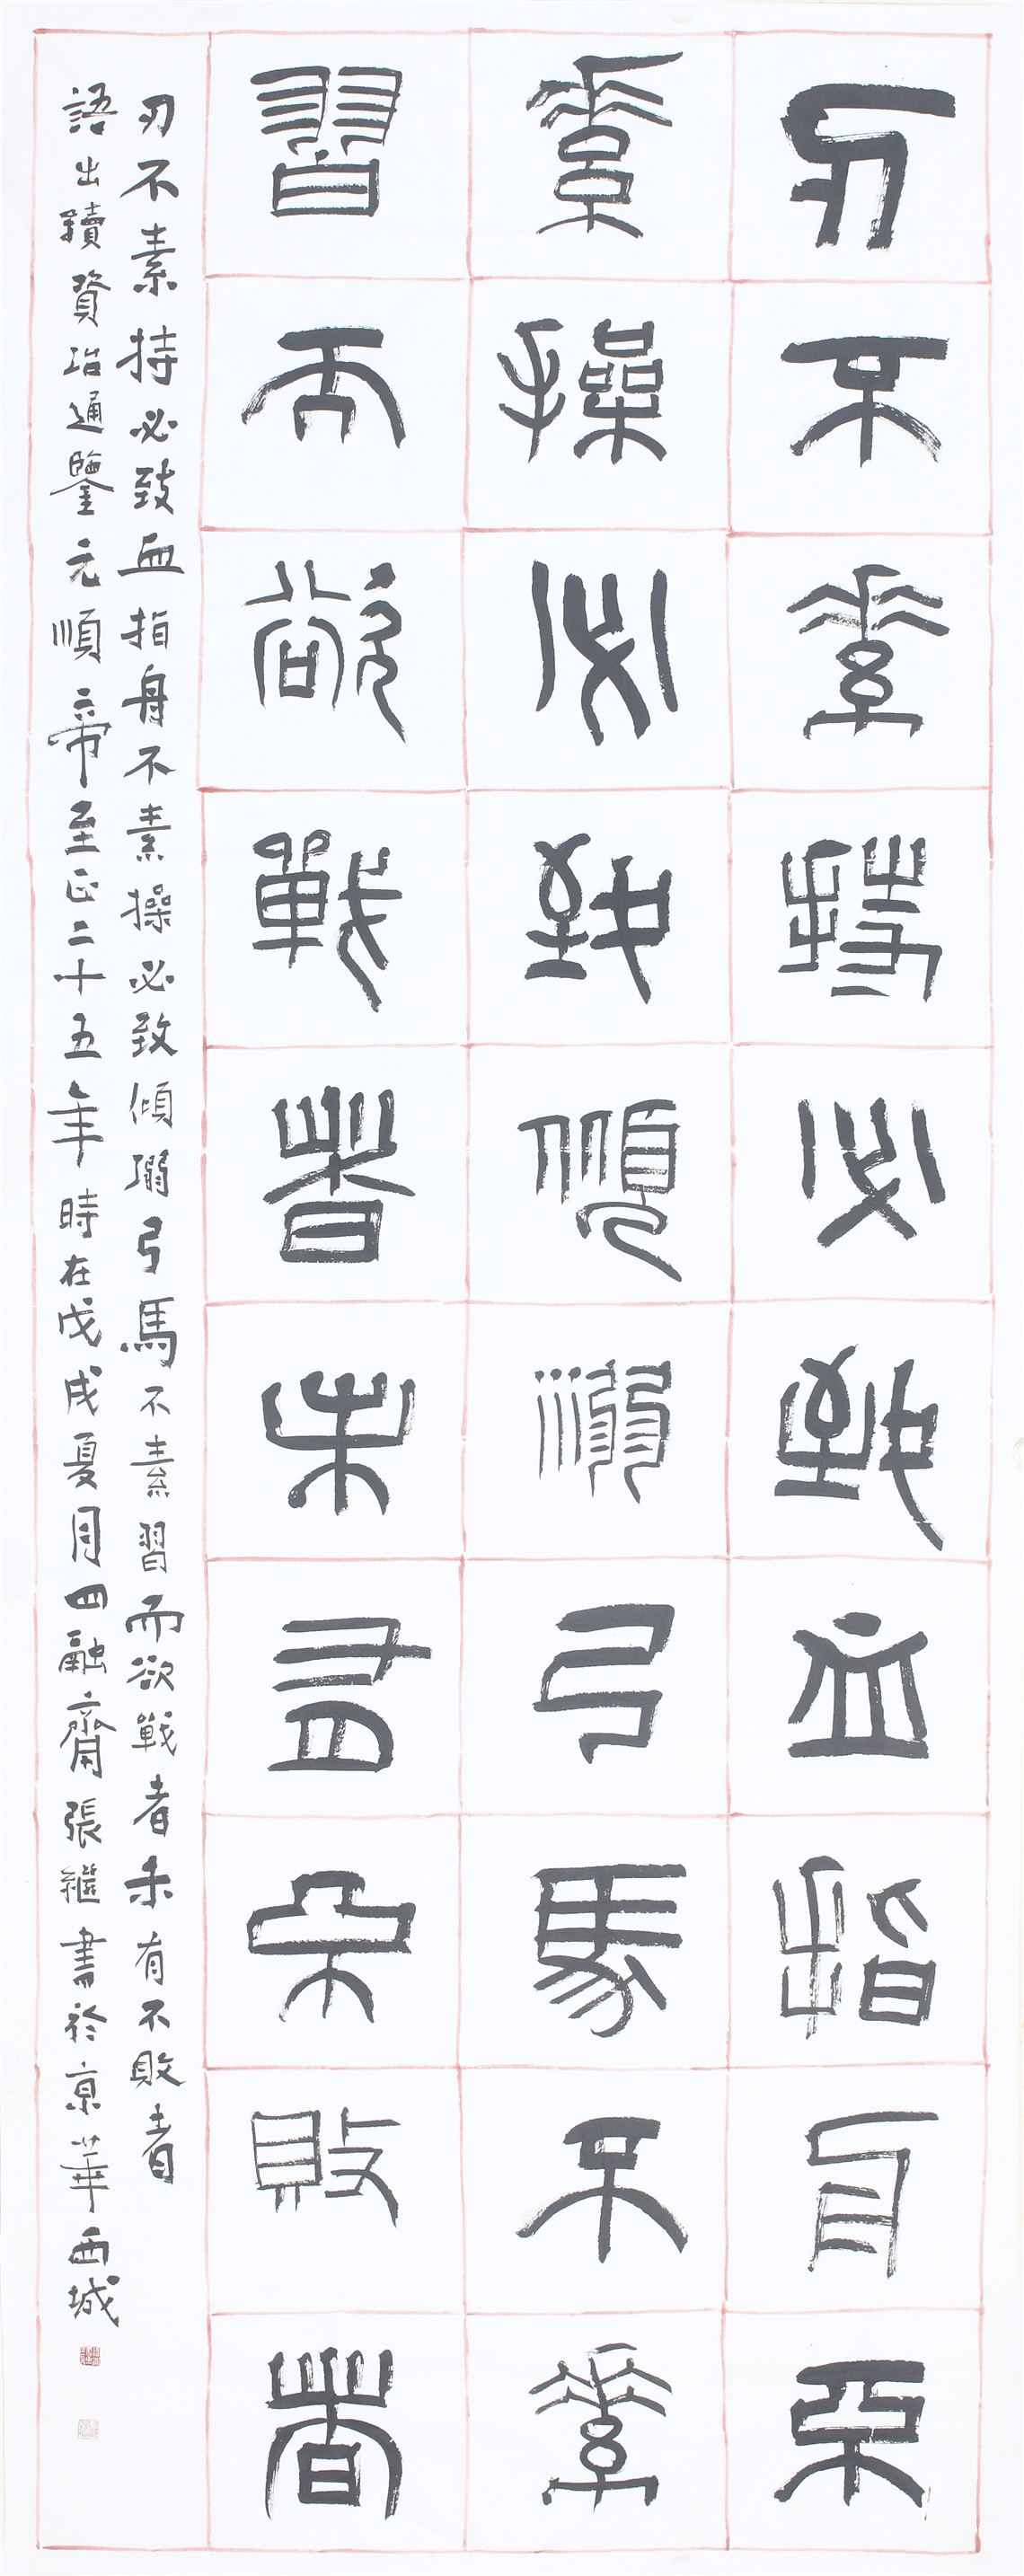 刃不素持必致血指舟不
素操必致傾溺弓馬不素
習而欲戰者未有不敗者
刃不素持必致血指舟不素操必致傾溺弓馬不素習而欲戰者未有不敗者
語出續資治通鑒元順帝至正二十五年時在戊戌夏月四融齋張繼書於京華西城